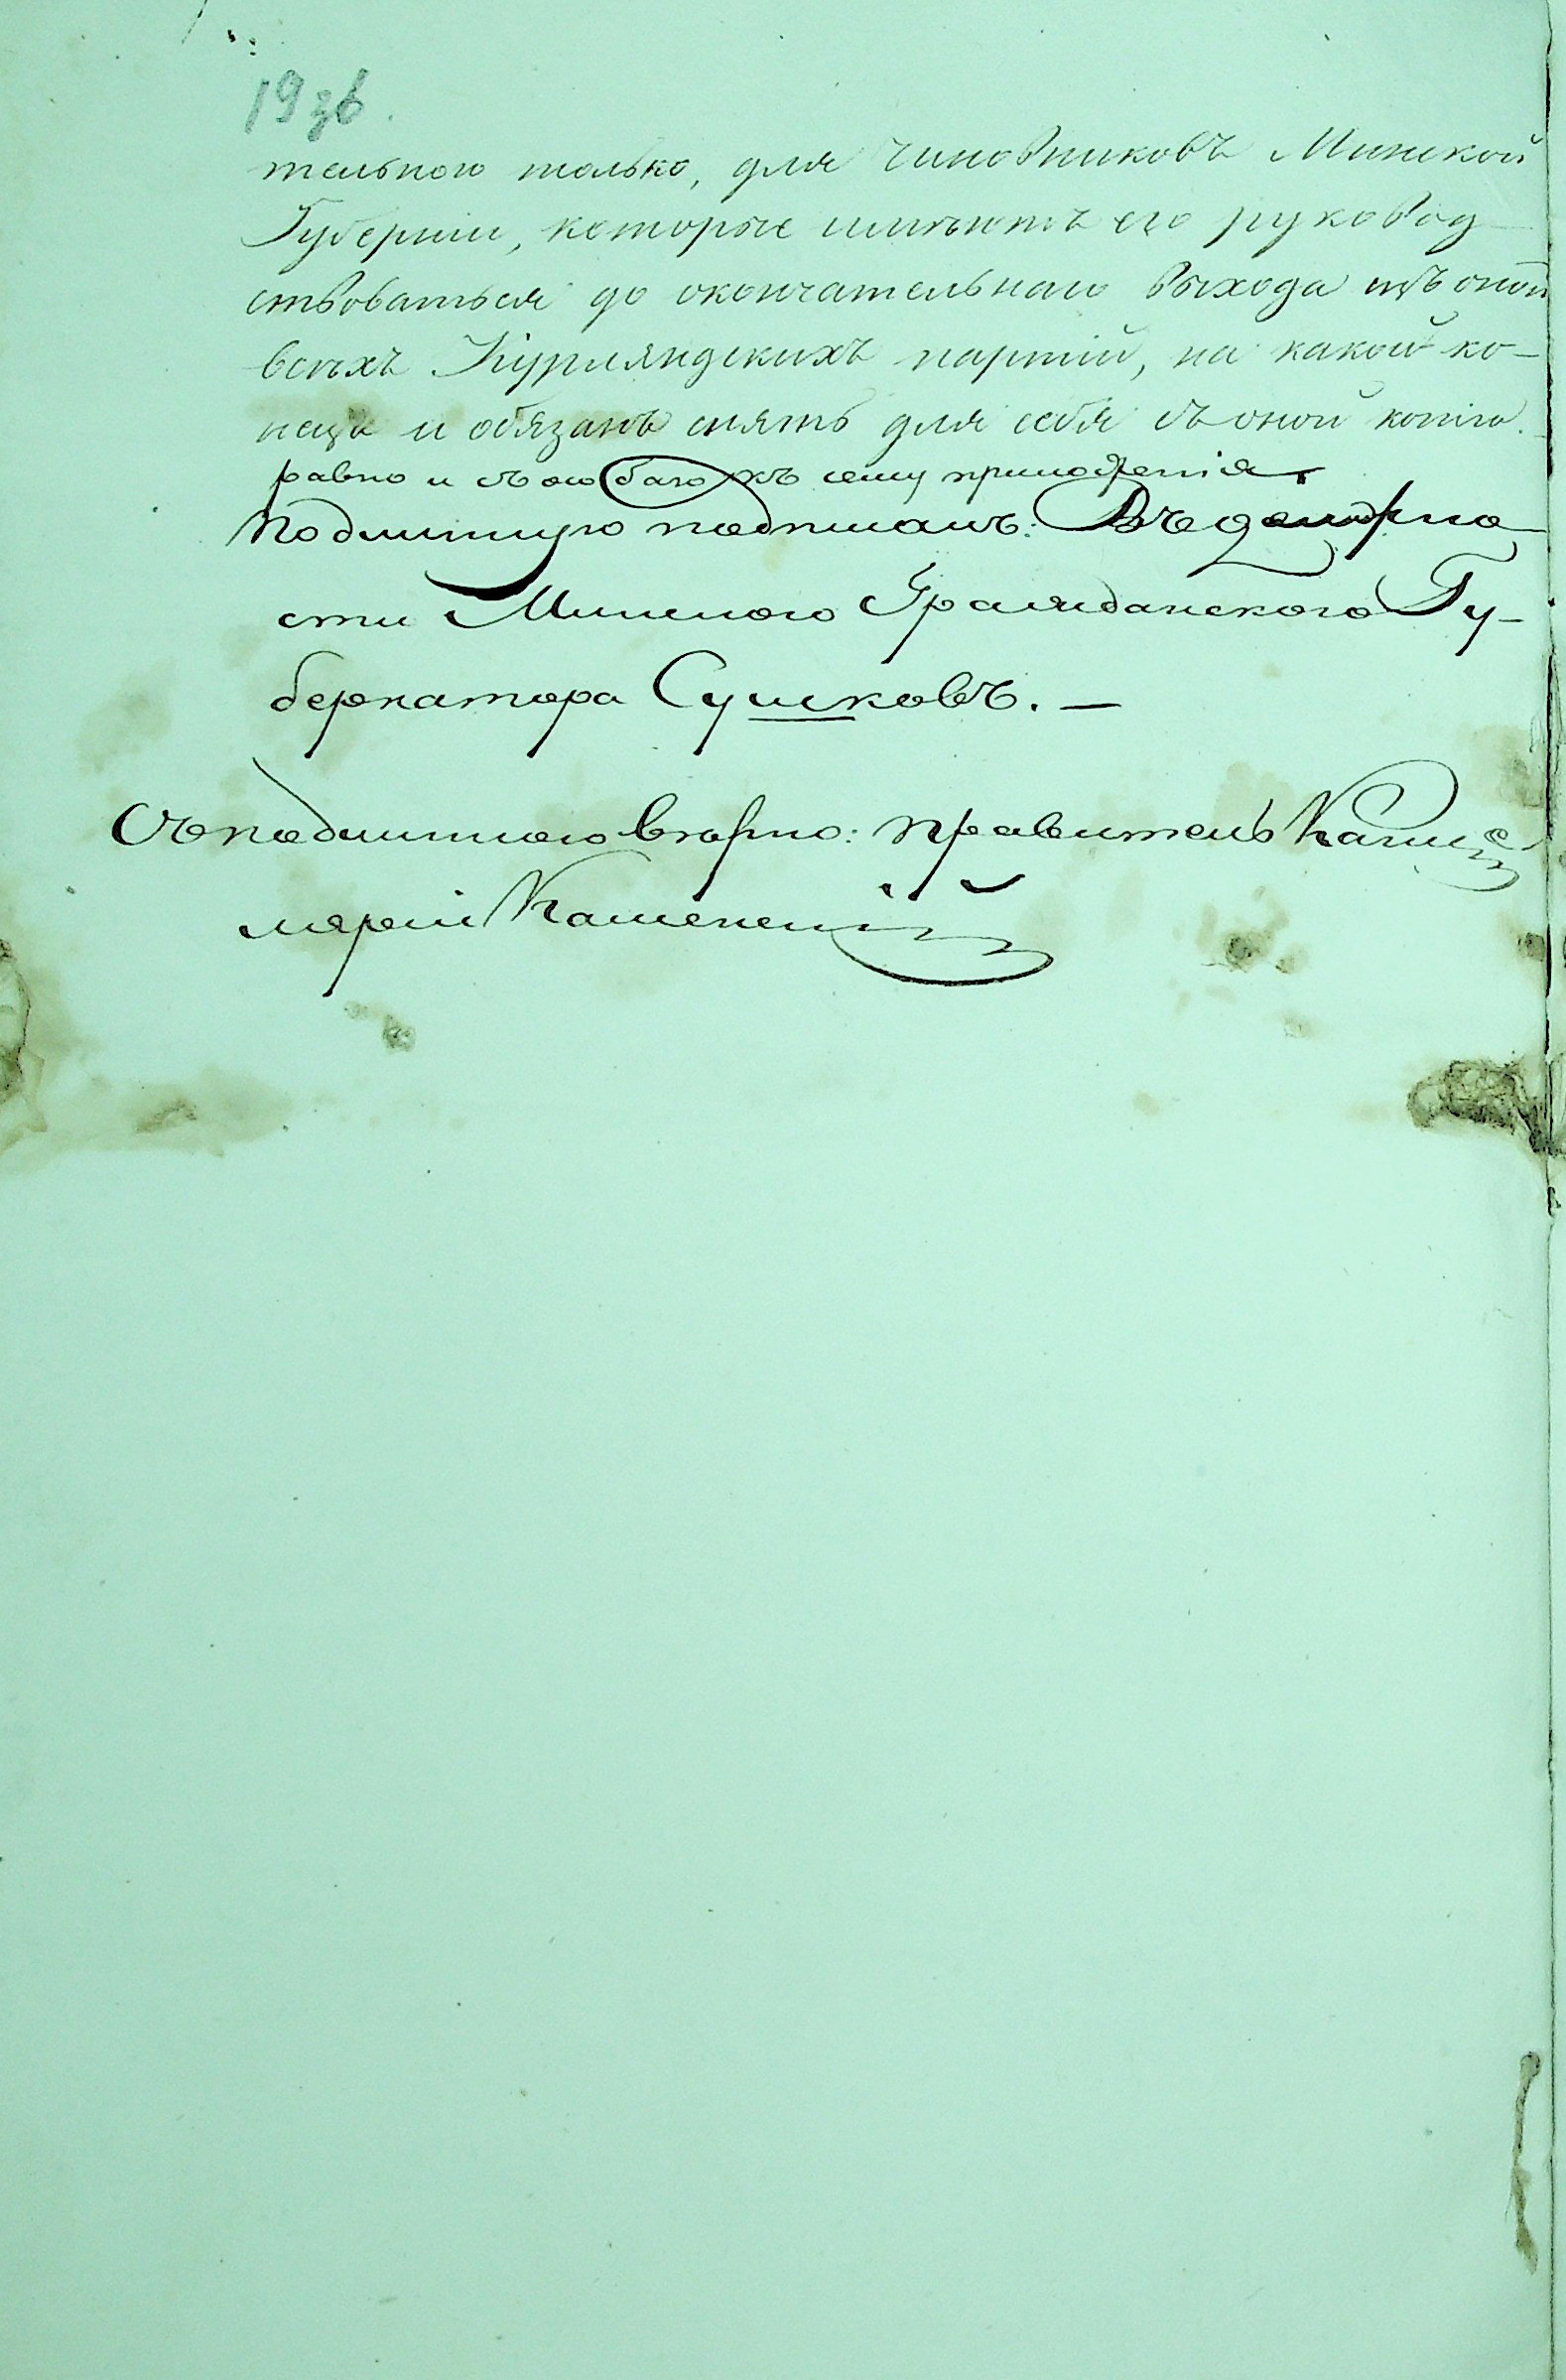 19 зв.
тельною только, для чиновниковъ Минской
Губерніи, которые имѣютъ ею руковод
ствоваться до окончательнаго выхода изъ оной
всѣхъ Курляндскихъ партій, на какой ко-
нецъ и обязанъ снять для себя съ оной копію.
равно и съ особаго къ сему приложенія.
Подлинную подписалъ: Въ должно
сти Минскаго Гражданскаго Гу-
бернатора Сушковъ. —
Съ подлинною вѣрно: Правитель Канце
ляріи Каменскій